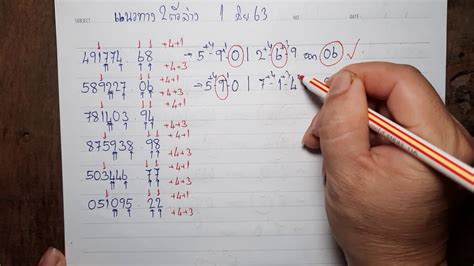 SUBJECT DATE
แนวทาง 2 ตัวล่าง 1 มิย 63
+4+1
491774 68 → 5 +4 9 +1 0 | 2 +4 6 +3 9 ออก 06 ✓
+4+3
+4+1
589227 06 → 5 +4 9 +1 0 | 7 +4 1 +3 4
+4+3
+4+1
781403 94
+4+3
+4+1
875938 98
+4+3
+4+1
503446 77
+4+3
+4+1
051095 22
+4+3